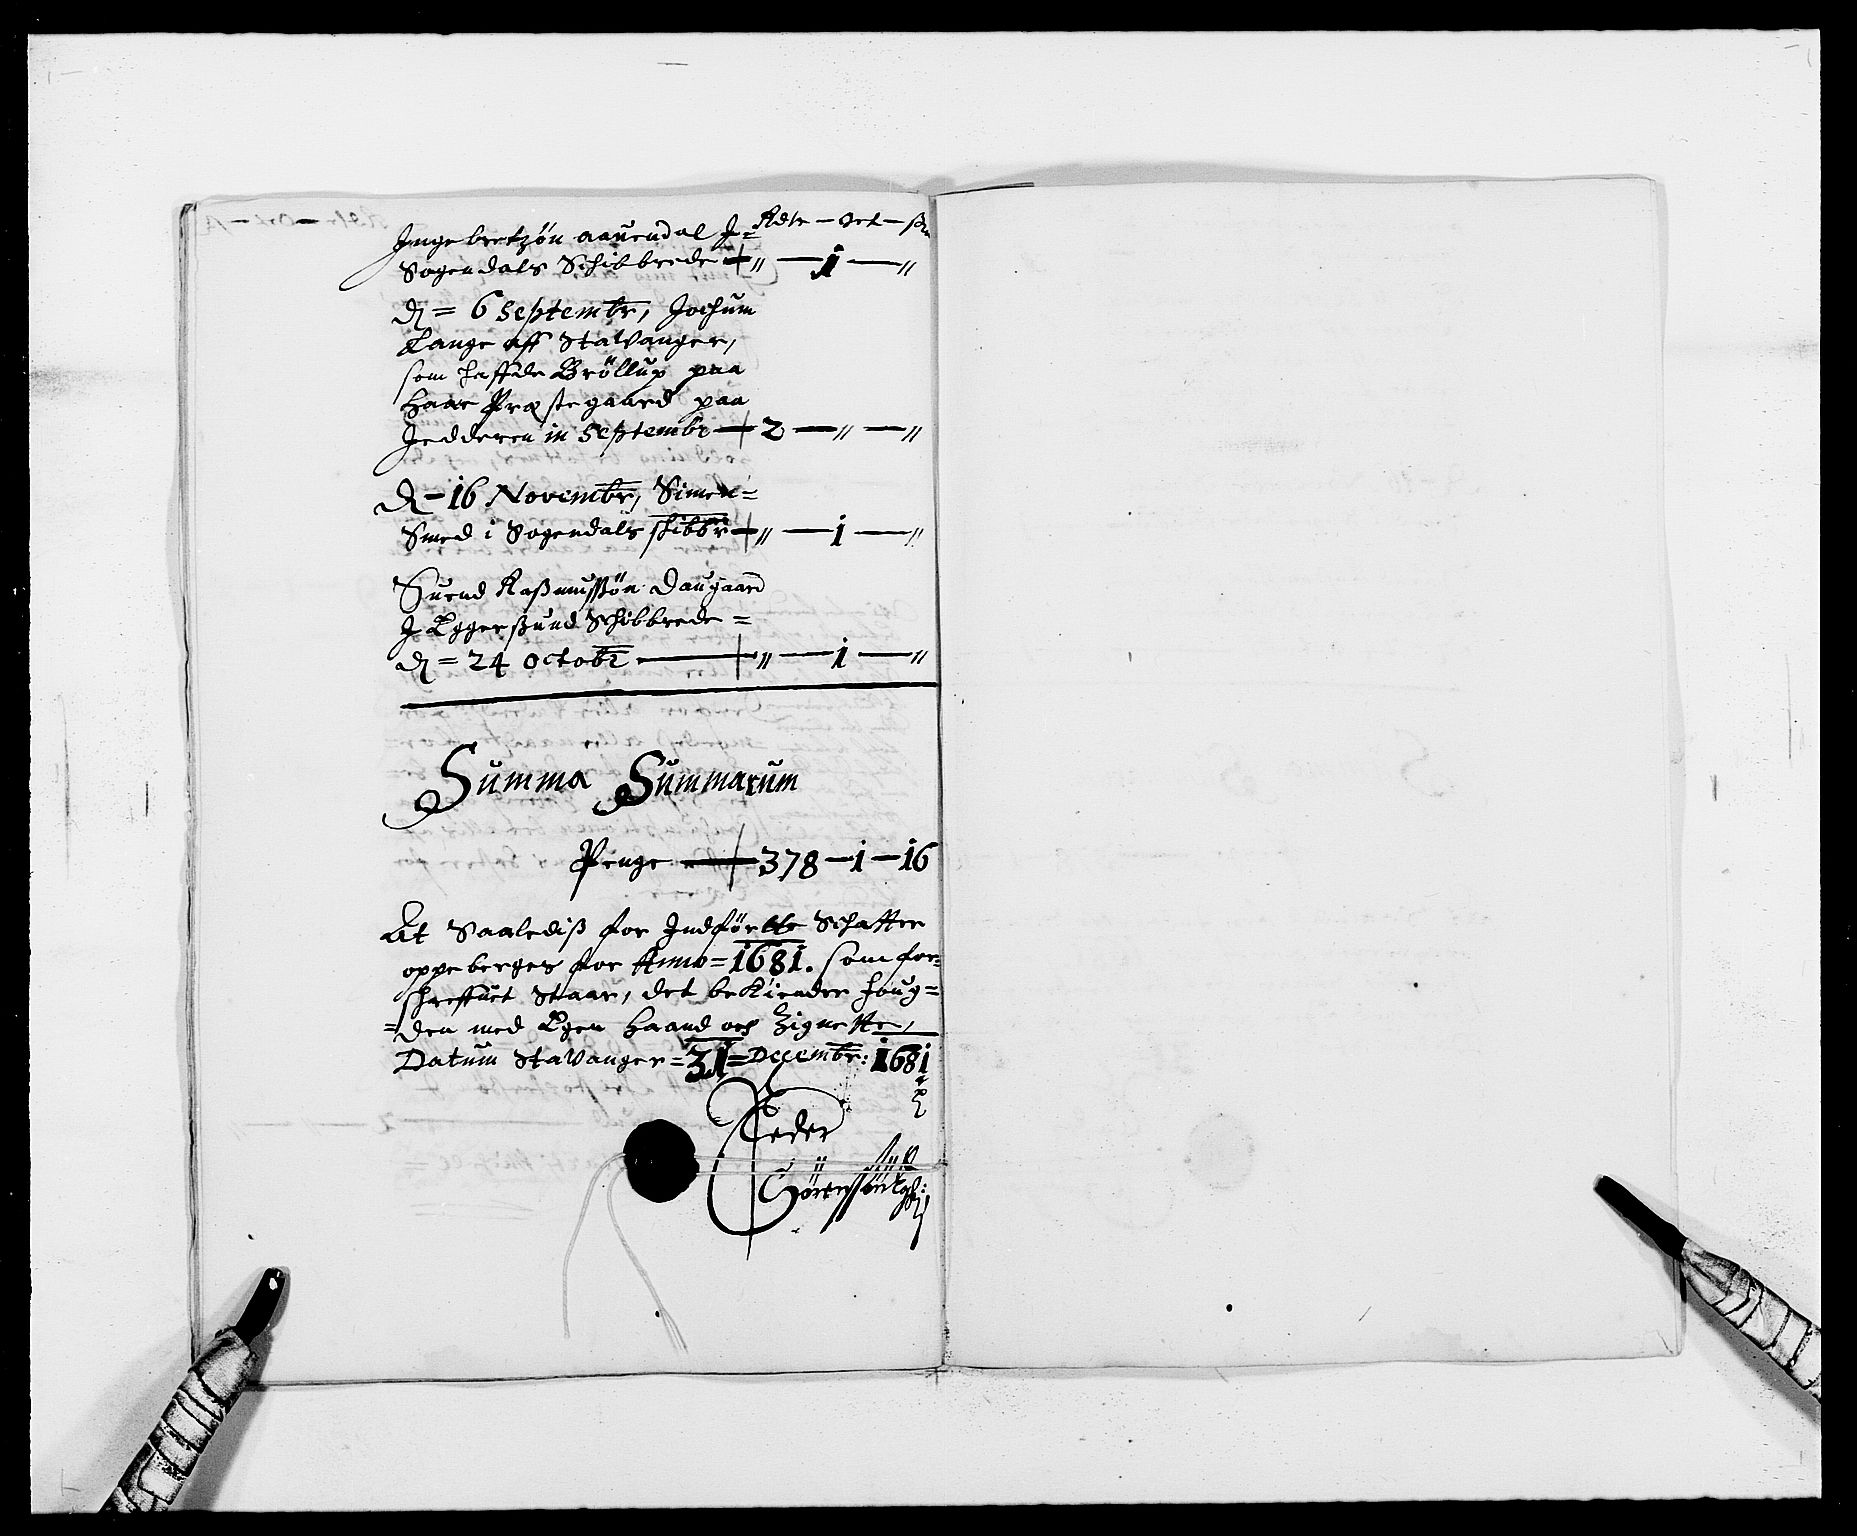 Rdlr – Ort – ß
Ingebretzøn aauendal J=
Sogendals Schibbrede — „ — 1 — „
D = 6 Septembr, Jochum
Lange aff Stavanger,
som haffde Brøllup paa
Haar Præstegaard paa
Jedderen in Septembr — 2 — „ — „
D – 16 Novembr, Simen=
Smed i Sogendals skibbr — „ — 1 — „
Suend Raßmussøn Daugaard
J Eggerßund Schibbrede =
D = 24 Octobr — „ — 1 — „
Summa Summarum
Penge — 378 – 1 – 16
At Saalediß for Indførtte Schatter
oppeberges for Anno = 1681. som for=
schreffuet Staar, det bekiender foug=
=den med Egen Haand och Zignette,
Datum Stavanger = 31 = Decembr: 1681
Peder
Sörenssön